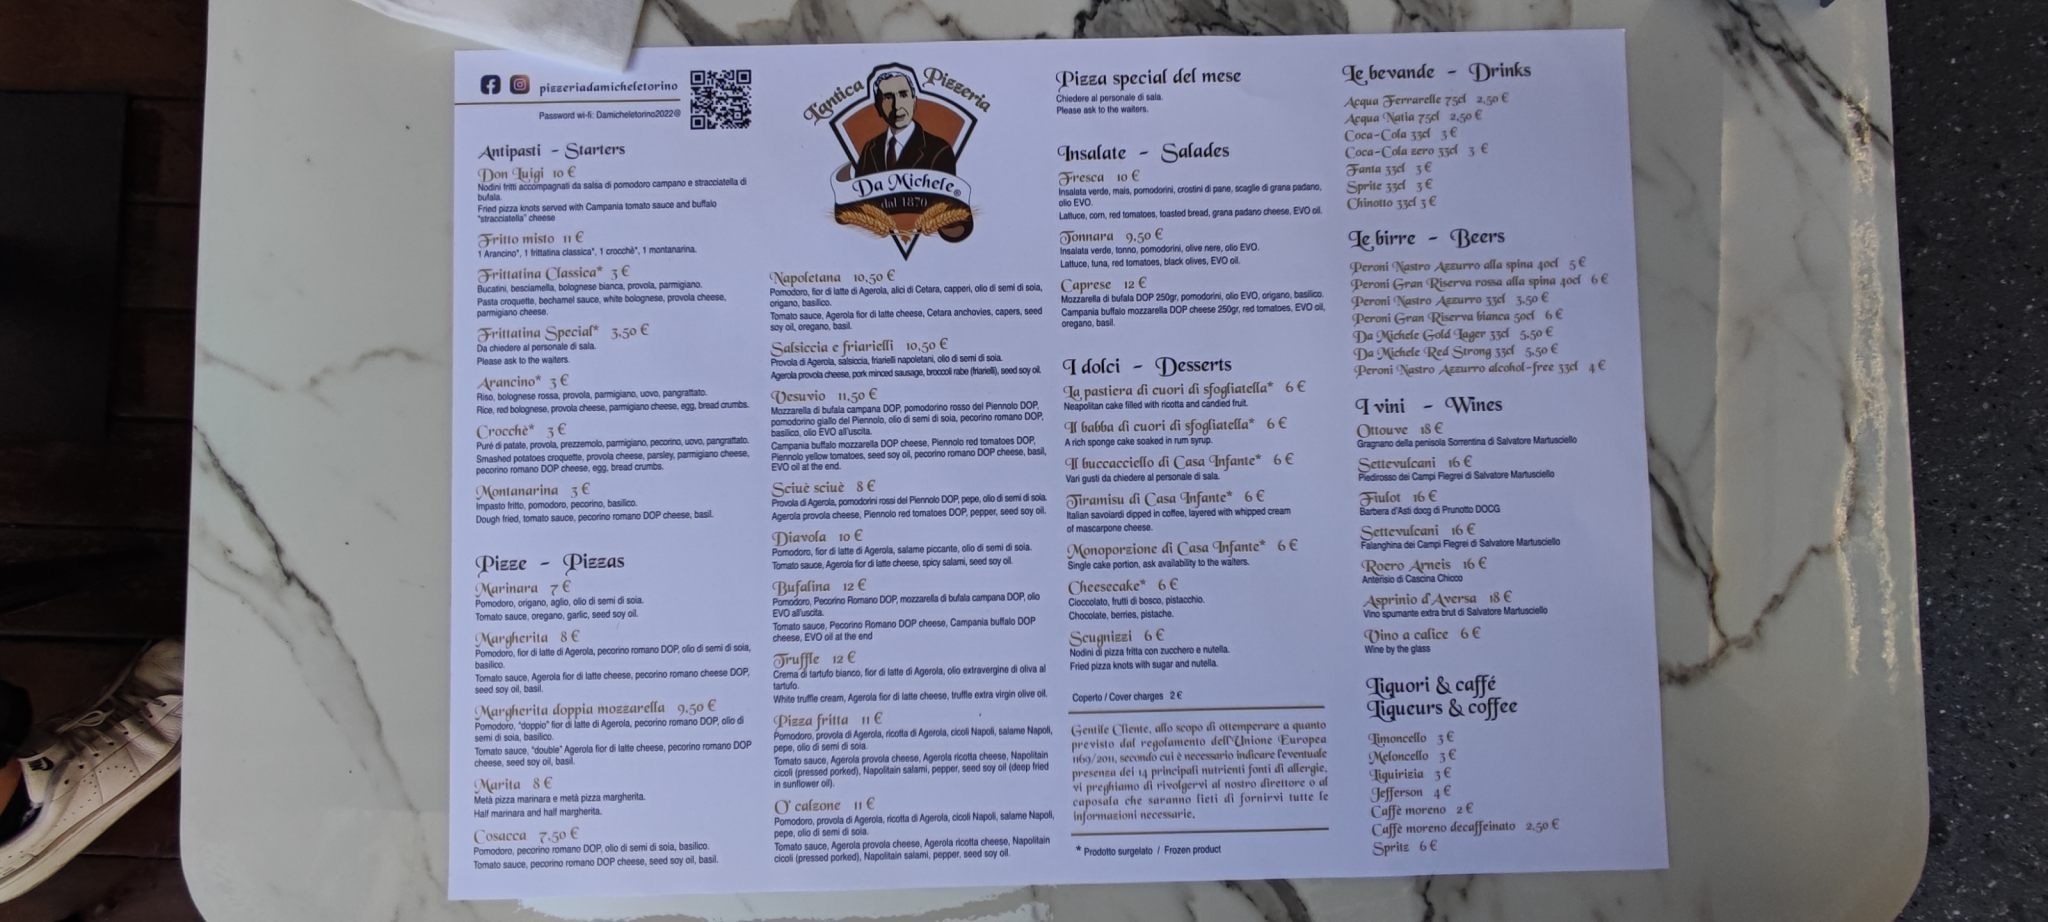 pizzeriadamicheletorino
Password wi-fi: Damicheletorino2022@
Antipasti - Starters
Don Luigi 10 €
Nodini fritti accompagnati da salsa di pomodoro campano e stracciatella di
bufala.
Fried pizza knots served with Campania tomato sauce and buffalo
"stracciatella" cheese
Fritto misto 11 €
1 Arancino*, 1 frittatina classica*, 1 crocchè*, 1 montanarina.
Frittatina Classica* 3 €
Bucatini, besciamella, bolognese bianca, provola, parmigiano.
Pasta croquette, bechamel sauce, white bolognese, provola cheese,
parmigiano cheese.
Frittatina Special* 3,50 €
Da chiedere al personale di sala.
Please ask to the waiters.
Arancino* 3 €
Riso, bolognese rossa, provola, parmigiano, uovo, pangrattato.
Rice, red bolognese, provola cheese, parmigiano cheese, egg, bread crumbs.
Crocchè* 3 €
Purè di patate, provola, prezzemolo, parmigiano, pecorino, uovo, pangrattato.
Smashed potatoes croquette, provola cheese, parsley, parmigiano cheese,
pecorino romano DOP cheese, egg, bread crumbs.
Montanarina 3 €
Impasto fritto, pomodoro, pecorino, basilico.
Dough fried, tomato sauce, pecorino romano DOP cheese, basil.
Pizze - Pizzas
Marinara 7 €
Pomodoro, origano, aglio, olio di semi di soia.
Tomato sauce, oregano, garlic, seed soy oil.
Margherita 8 €
Pomodoro, fior di latte di Agerola, pecorino romano DOP, olio di semi di soia,
basilico.
Tomato sauce, Agerola fior di latte cheese, pecorino romano cheese DOP,
seed soy oil, basil.
Margherita doppia mozzarella 9,50 €
Pomodoro, "doppio" fior di latte di Agerola, pecorino romano DOP, olio di
semi di soia, basilico.
Tomato sauce, "double" Agerola fior di latte cheese, pecorino romano DOP
cheese, seed soy oil, basil.
Marita 8 €
Metà pizza marinara e metà pizza margherita.
Half marinara and half margherita.
Cosacca 7,50 €
Pomodoro, pecorino romano DOP, olio di semi di soia, basilico.
Tomato sauce, pecorino romano DOP cheese, seed soy oil, basil.
L'antica Pizzeria
Da Michele®
dal 1870
Napoletana 10,50 €
Pomodoro, fior di latte di Agerola, alici di Cetara, capperi, olio di semi di soia,
origano, basilico.
Tomato sauce, Agerola fior di latte cheese, Cetara anchovies, capers, seed
soy oil, oregano, basil.
Salsiccia e friarielli 10,50 €
Provola di Agerola, salsiccia, friarielli napoletani, olio di semi di soia.
Agerola provola cheese, pork minced sausage, broccoli rabe (friarielli), seed soy oil.
Vesuvio 11,50 €
Mozzarella di bufala campana DOP, pomodorino rosso del Piennolo DOP,
pomodorino giallo del Piennolo, olio di semi di soia, pecorino romano DOP,
basilico, olio EVO all'uscita.
Campania buffalo mozzarella DOP cheese, Piennolo red tomatoes DOP,
Piennolo yellow tomatoes, seed soy oil, pecorino romano DOP cheese, basil,
EVO oil at the end.
Sciuè sciuè 8 €
Provola di Agerola, pomodorini rossi del Piennolo DOP, pepe, olio di semi di soia.
Agerola provola cheese, Piennolo red tomatoes DOP, pepper, seed soy oil.
Diavola 10 €
Pomodoro, fior di latte di Agerola, salame piccante, olio di semi di soia.
Tomato sauce, Agerola fior di latte cheese, spicy salami, seed soy oil.
Bufalina 12 €
Pomodoro, Pecorino Romano DOP, mozzarella di bufala campana DOP, olio
EVO all'uscita.
Tomato sauce, Pecorino Romano DOP cheese, Campania buffalo DOP
cheese, EVO oil at the end
Truffle 12 €
Crema di tartufo bianco, fior di latte di Agerola, olio extravergine di oliva al
tartufo.
White truffle cream, Agerola fior di latte cheese, truffle extra virgin olive oil.
Pizza fritta 11 €
Pomodoro, provola di Agerola, ricotta di Agerola, cicoli Napoli, salame Napoli,
pepe, olio di semi di soia.
Tomato sauce, Agerola provola cheese, Agerola ricotta cheese, Napolitain
cicoli (pressed porked), Napolitain salami, pepper, seed soy oil (deep fried
in sunflower oil).
O' calzone 11 €
Pomodoro, provola di Agerola, ricotta di Agerola, cicoli Napoli, salame Napoli,
pepe, olio di semi di soia.
Tomato sauce, Agerola provola cheese, Agerola ricotta cheese, Napolitain
cicoli (pressed porked), Napolitain salami, pepper, seed soy oil.
Pizza special del mese
Chiedere al personale di sala.
Please ask to the waiters.
Insalate - Salades
Fresca 10 €
Insalata verde, mais, pomodorini, crostini di pane, scaglie di grana padano,
olio EVO.
Lattuce, corn, red tomatoes, toasted bread, grana padano cheese, EVO oil.
Tonnara 9,50 €
Insalata verde, tonno, pomodorini, olive nere, olio EVO.
Lattuce, tuna, red tomatoes, black olives, EVO oil.
Caprese 12 €
Mozzarella di bufala DOP 250gr, pomodorini, olio EVO, origano, basilico.
Campania buffalo mozzarella DOP cheese 250gr, red tomatoes, EVO oil,
oregano, basil.
I dolci - Desserts
La pastiera di cuori di sfogliatella* 6 €
Neapolitan cake filled with ricotta and candied fruit.
Il babba di cuori di sfogliatella* 6 €
A rich sponge cake soaked in rum syrup.
Il buccacciello di Casa Infante* 6 €
Vari gusti da chiedere al personale di sala.
Tiramisu di Casa Infante* 6 €
Italian savoiardi dipped in coffee, layered with whipped cream
of mascarpone cheese.
Monoporzione di Casa Infante* 6 €
Single cake portion, ask availability to the waiters.
Cheesecake* 6 €
Cioccolato, frutti di bosco, pistacchio.
Chocolate, berries, pistache.
Scugnizzi 6 €
Nodini di pizza fritta con zucchero e nutella.
Fried pizza knots with sugar and nutella.
Coperto / Cover charges 2 €
Gentile Cliente, allo scopo di ottemperare a quanto
previsto dal regolamento dell'Unione Europea
1169/2011, secondo cui è necessario indicare l'eventuale
presenza dei 14 principali nutrienti fonti di allergie,
vi preghiamo di rivolgervi al nostro direttore o al
caposala che saranno lieti di fornirvi tutte le
informazioni necessarie.
* Prodotto surgelato / Frozen product
Le bevande - Drinks
Acqua Ferrarelle 75cl 2,50 €
Acqua Natia 75cl 2,50 €
Coca-Cola 33cl 3 €
Coca-Cola zero 33cl 3 €
Fanta 33cl 3 €
Sprite 33cl 3 €
Chinotto 33cl 3 €
Le birre - Beers
Peroni Nastro Azzurro alla spina 40cl 5 €
Peroni Gran Riserva rossa alla spina 40cl 6 €
Peroni Nastro Azzurro 33cl 3,50 €
Peroni Gran Riserva bianca 50cl 6 €
Da Michele Gold Lager 33cl 5,50 €
Da Michele Red Strong 33cl 5,50 €
Peroni Nastro Azzurro alcohol-free 33cl 4 €
I vini - Wines
Ottouve 18 €
Gragnano della penisola Sorrentina di Salvatore Martusciello
Settevulcani 16 €
Piedirosso dei Campi Flegrei di Salvatore Martusciello
Fiulot 16 €
Barbera d'Asti docg di Prunotto DOCG
Settevulcani 16 €
Falanghina dei Campi Flegrei di Salvatore Martusciello
Roero Arneis 16 €
Anterisio di Cascina Chicco
Asprinio d'Aversa 18 €
Vino spumante extra brut di Salvatore Martusciello
Vino a calice 6 €
Wine by the glass
Liquori & caffé
Liqueurs & coffee
Limoncello 3 €
Meloncello 3 €
Liquirizia 3 €
Jefferson 4 €
Caffè moreno 2 €
Caffè moreno decaffeinato 2,50 €
Spritz 6 €